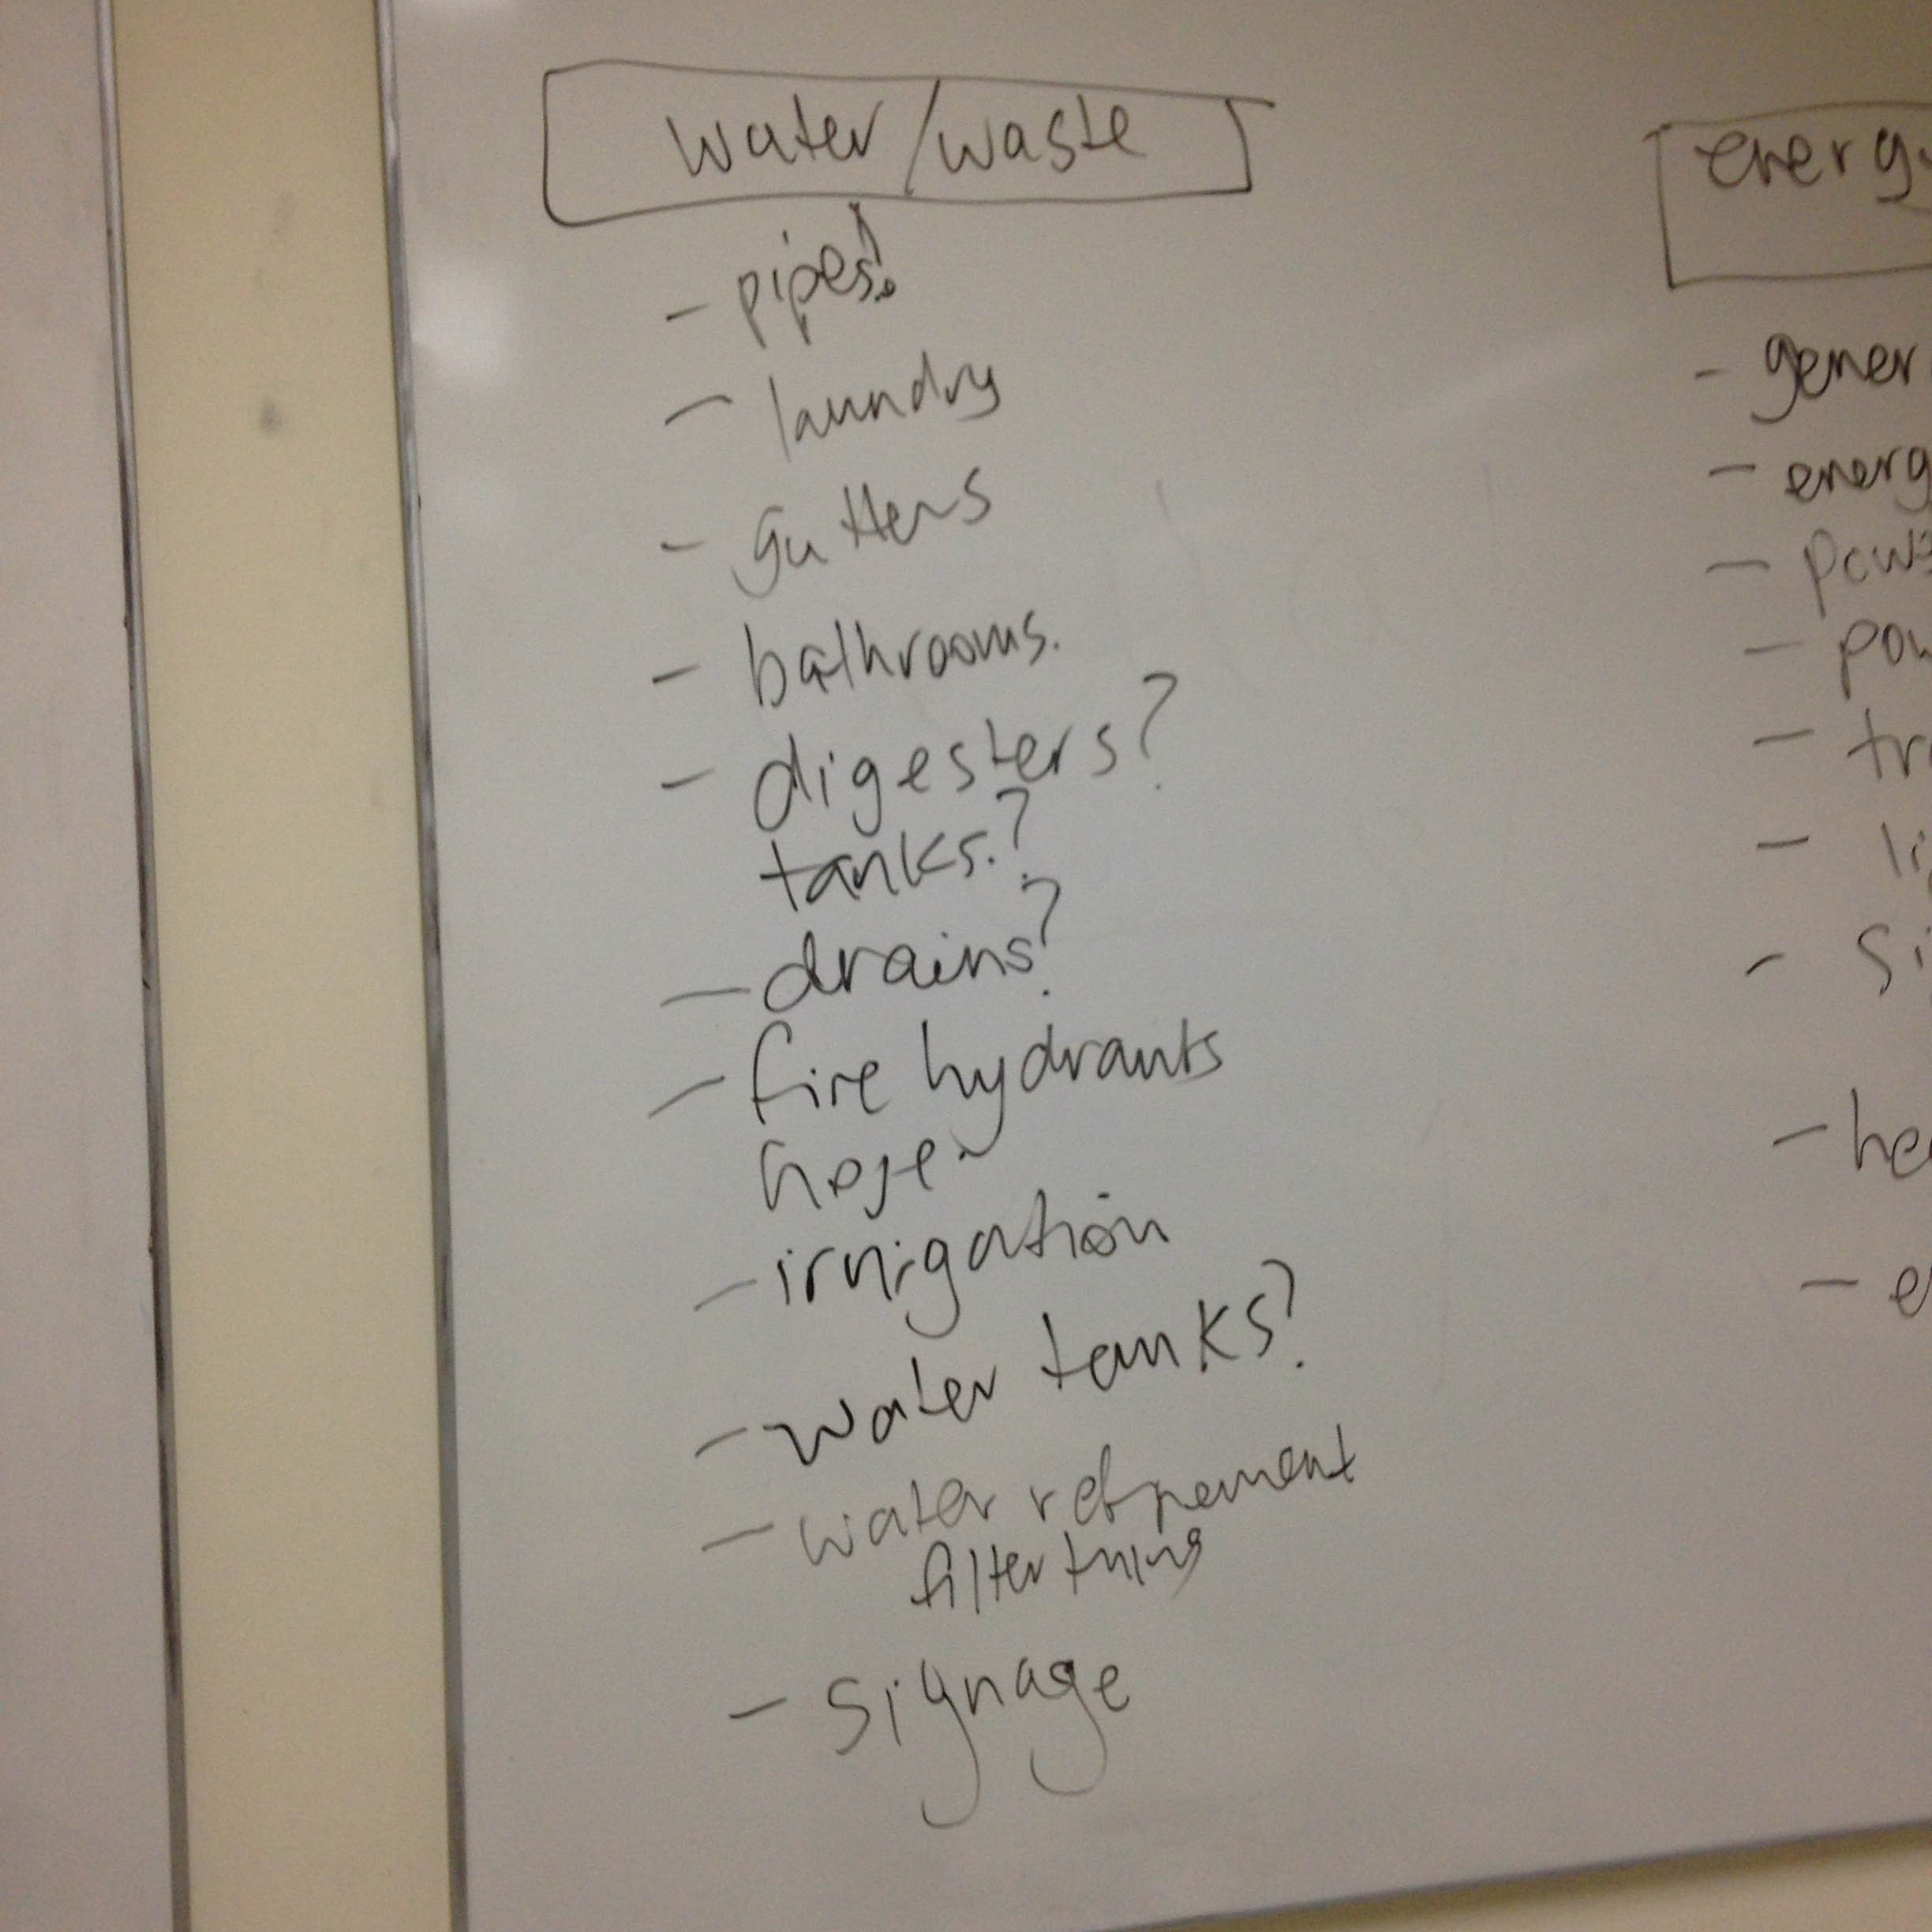 water/waste
- pipes!
- laundry
- gutters
- bathrooms.
- digesters?
tanks.?
- drains?
- fire hydrants
hose
- irrigation
- water tanks?
- water refinement
filter thing
- signage
energy
- gener
- energ
- pow
- pow
- tr
- li
- si
- he
- e